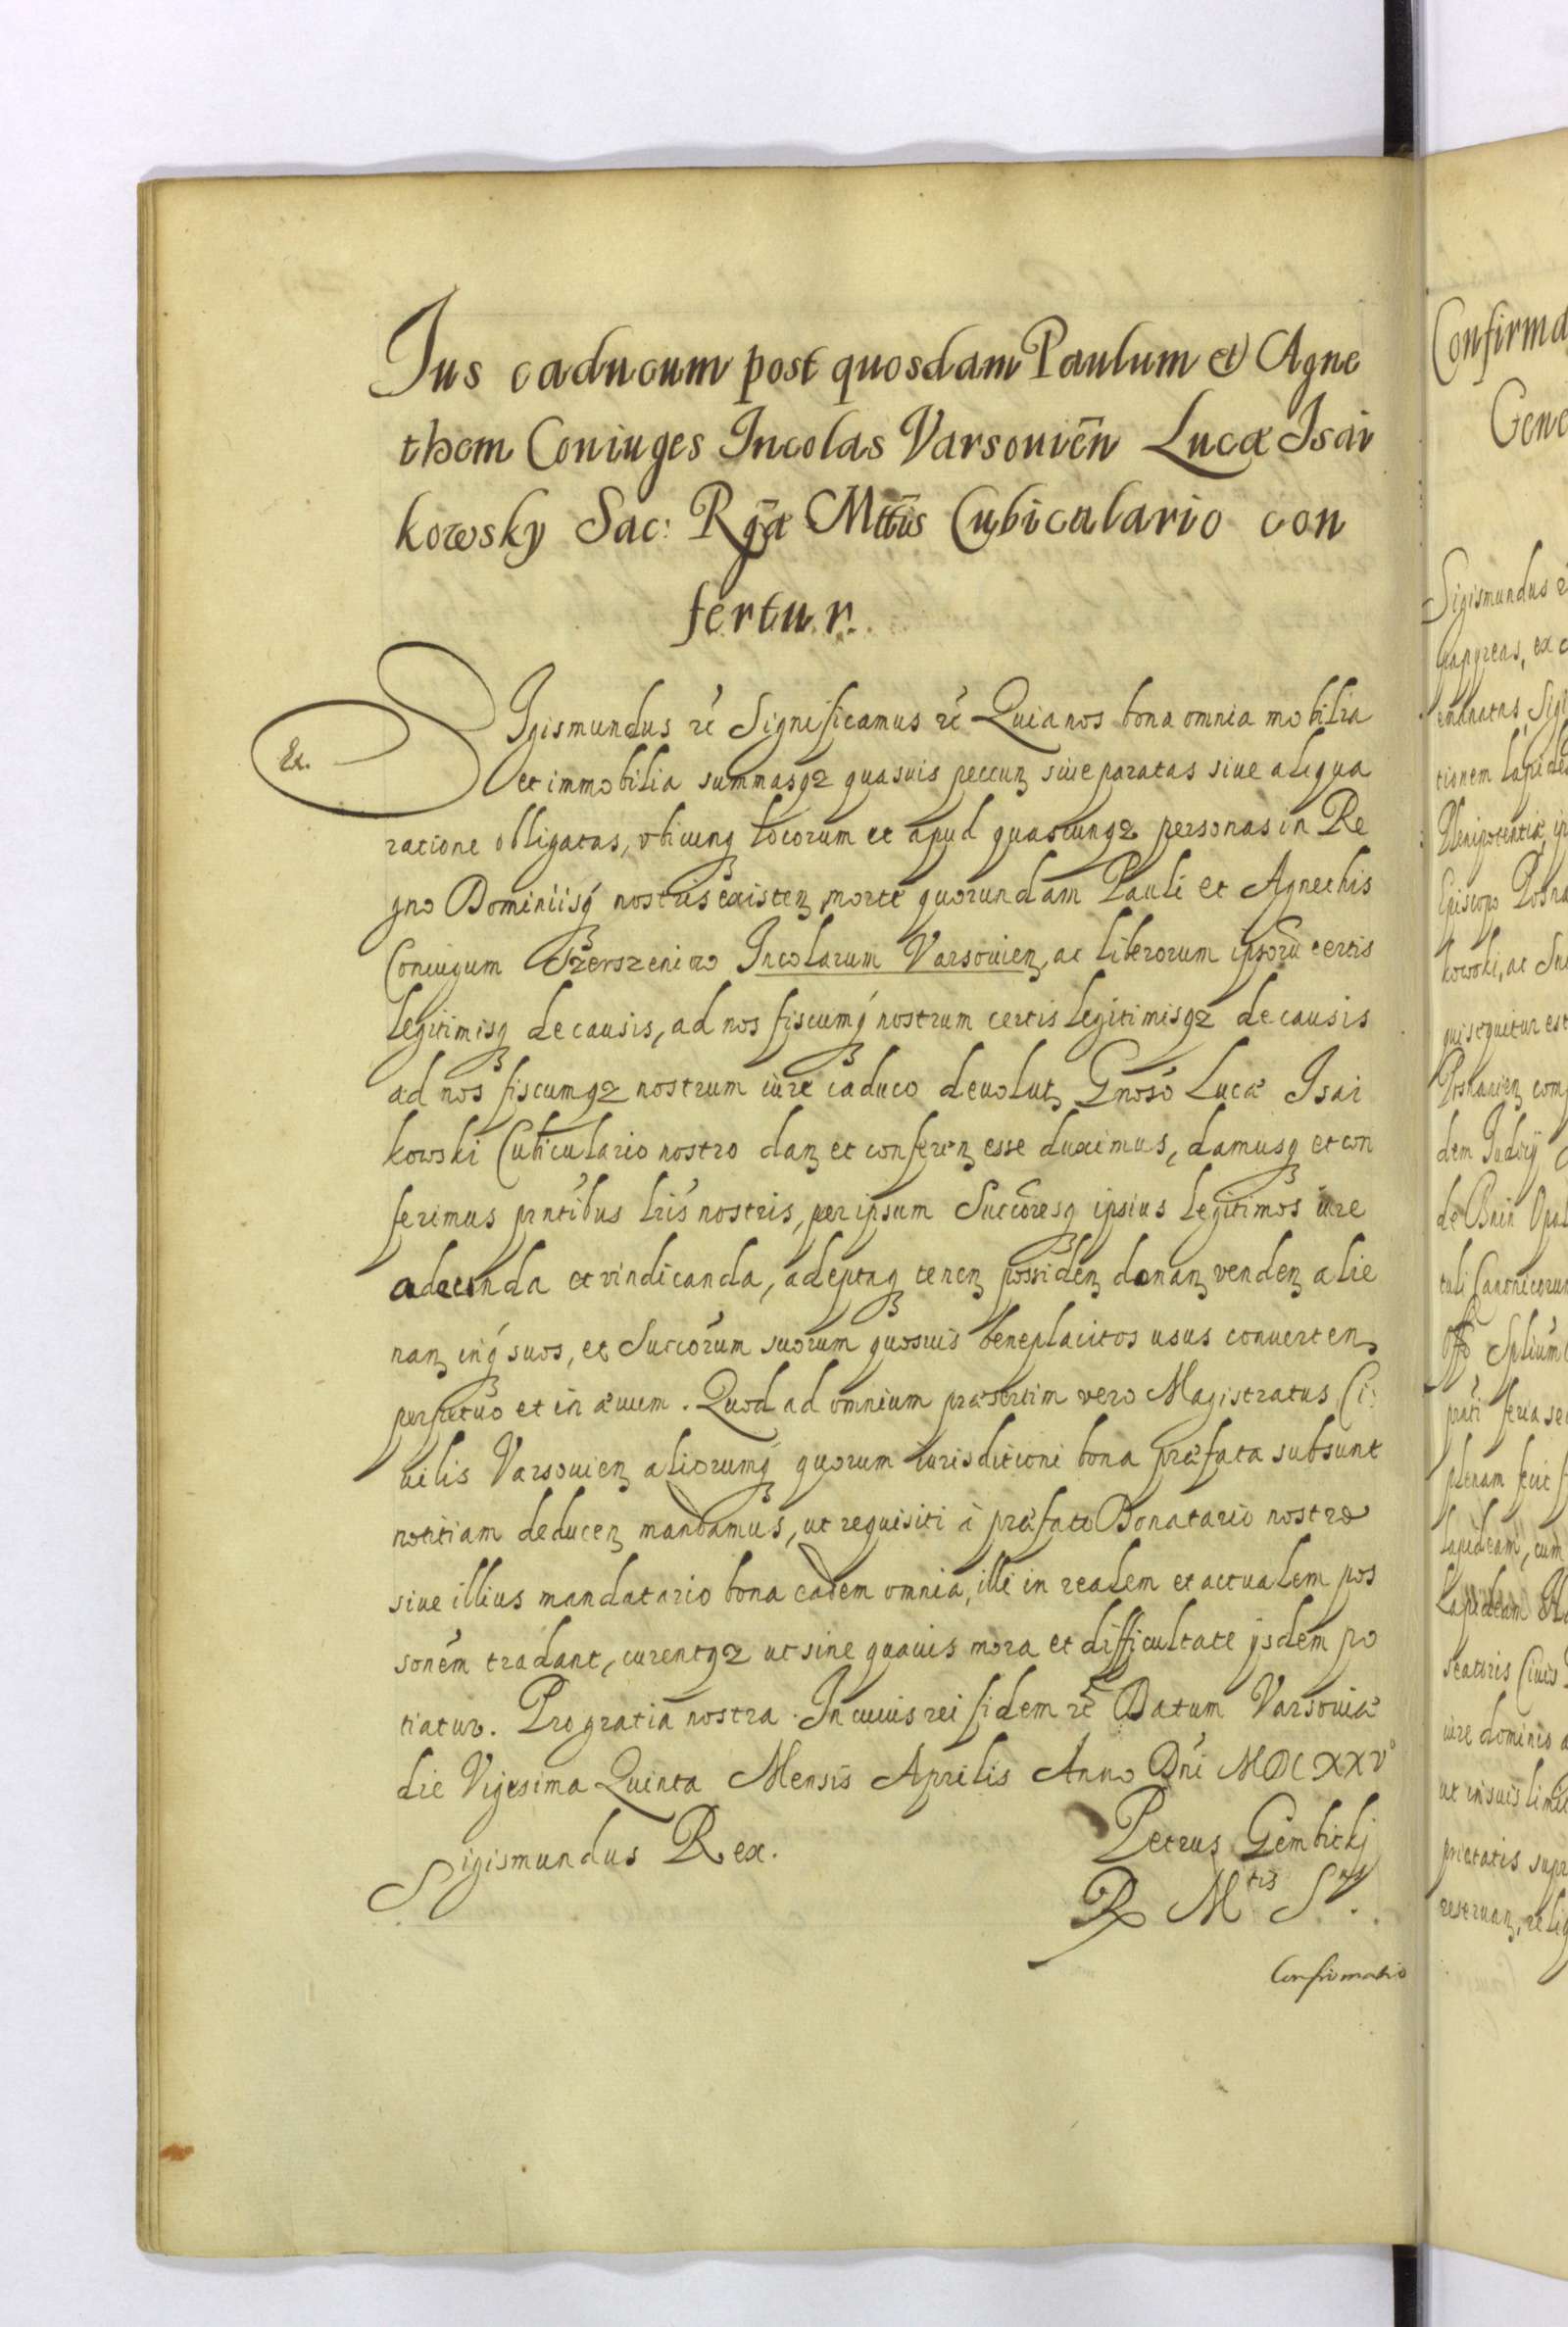 Jus caducum post quosdam Paulum et Agne
them Coniuges Incolas Varsouien̄ Lucæ Isai
kowsky Sac: Rḡæ Mttis̄ Cubiculario con
fertur.
Ex.
SIgismundus rć Significamus rć Quia nos bona omnia mobilia
et immobilia summasqz quasuis peccunꝫ siue paratas siue aliqua
ratione obligatas, vbicunqꝫ locorum et apud quascunqz personas in Re
gno Dominiisqꝫ nostris existenꝫ morte quorundam Pauli et Agnethis
Coniugum Szerszeniow Incolarum Varsouienꝫ, ac liberorum ipsorū certis
legitimisqꝫ de causis, ad nos fiscumqꝫ nostrum certis legitimisqz de causis
ad nos fiscumqz nostrum iure caduco deuolutꝫ Gnosó Lucæ Isai
kowski Cubiculario nostro danꝫ et conferenꝫ esse duximus, damusqꝫ et con
ferimus prntibus lris nostris, per ipsum Succoresqꝫ ipsius legitimos iure
adeunda et vindicanda, adeptaqꝫ tenenꝫ possidenꝫ donanꝫ vendenꝫ alie
nanꝫ inqꝫ suos, et Succorum suorum quosuis beneplacitos usus conuertenꝫ
perpetuo et in æuum. Quod ad omnium præsertim vero Magistratus Ci:
uilis Varsouienꝫ aliorumqꝫ quorum iurisditioni bona præfata subsunt
notitiam deducenꝫ mandamus, ut requisiti à præfato Donatario nostro
siue illius mandatario bona eadem omnia, illi in realem et actualem pos
sonem tradant, curentqz ut sine quauis mora et difficultate ysdem po
tiatur. Pro gratia nostra. In cuius rei fidem rć Datum Varsouiæ
die Vigesima Quinta Mensis Aprilis Anno Dni MDCXXV°
Sigismundus Rex.
Petrus Gembickj
R Mtis Srius.
Confirmatio
Confirma
Gene
Sigismundus
papyreas, ex
emanatas, Sigi
tionem lapide
Plenipotentiæ, ip
Episcopo Posna
kowski, ac
qui sequitur est
Posnanienꝫ com
dem Judicÿ
de Bnin Opal
tuli Canonicorum
prati feria se
plenam fecit
lapideam, cum
lapideam
statoris Ciuis
iure dominis a
ut in suis limit
prietatis supr
reseruanꝫ, relig